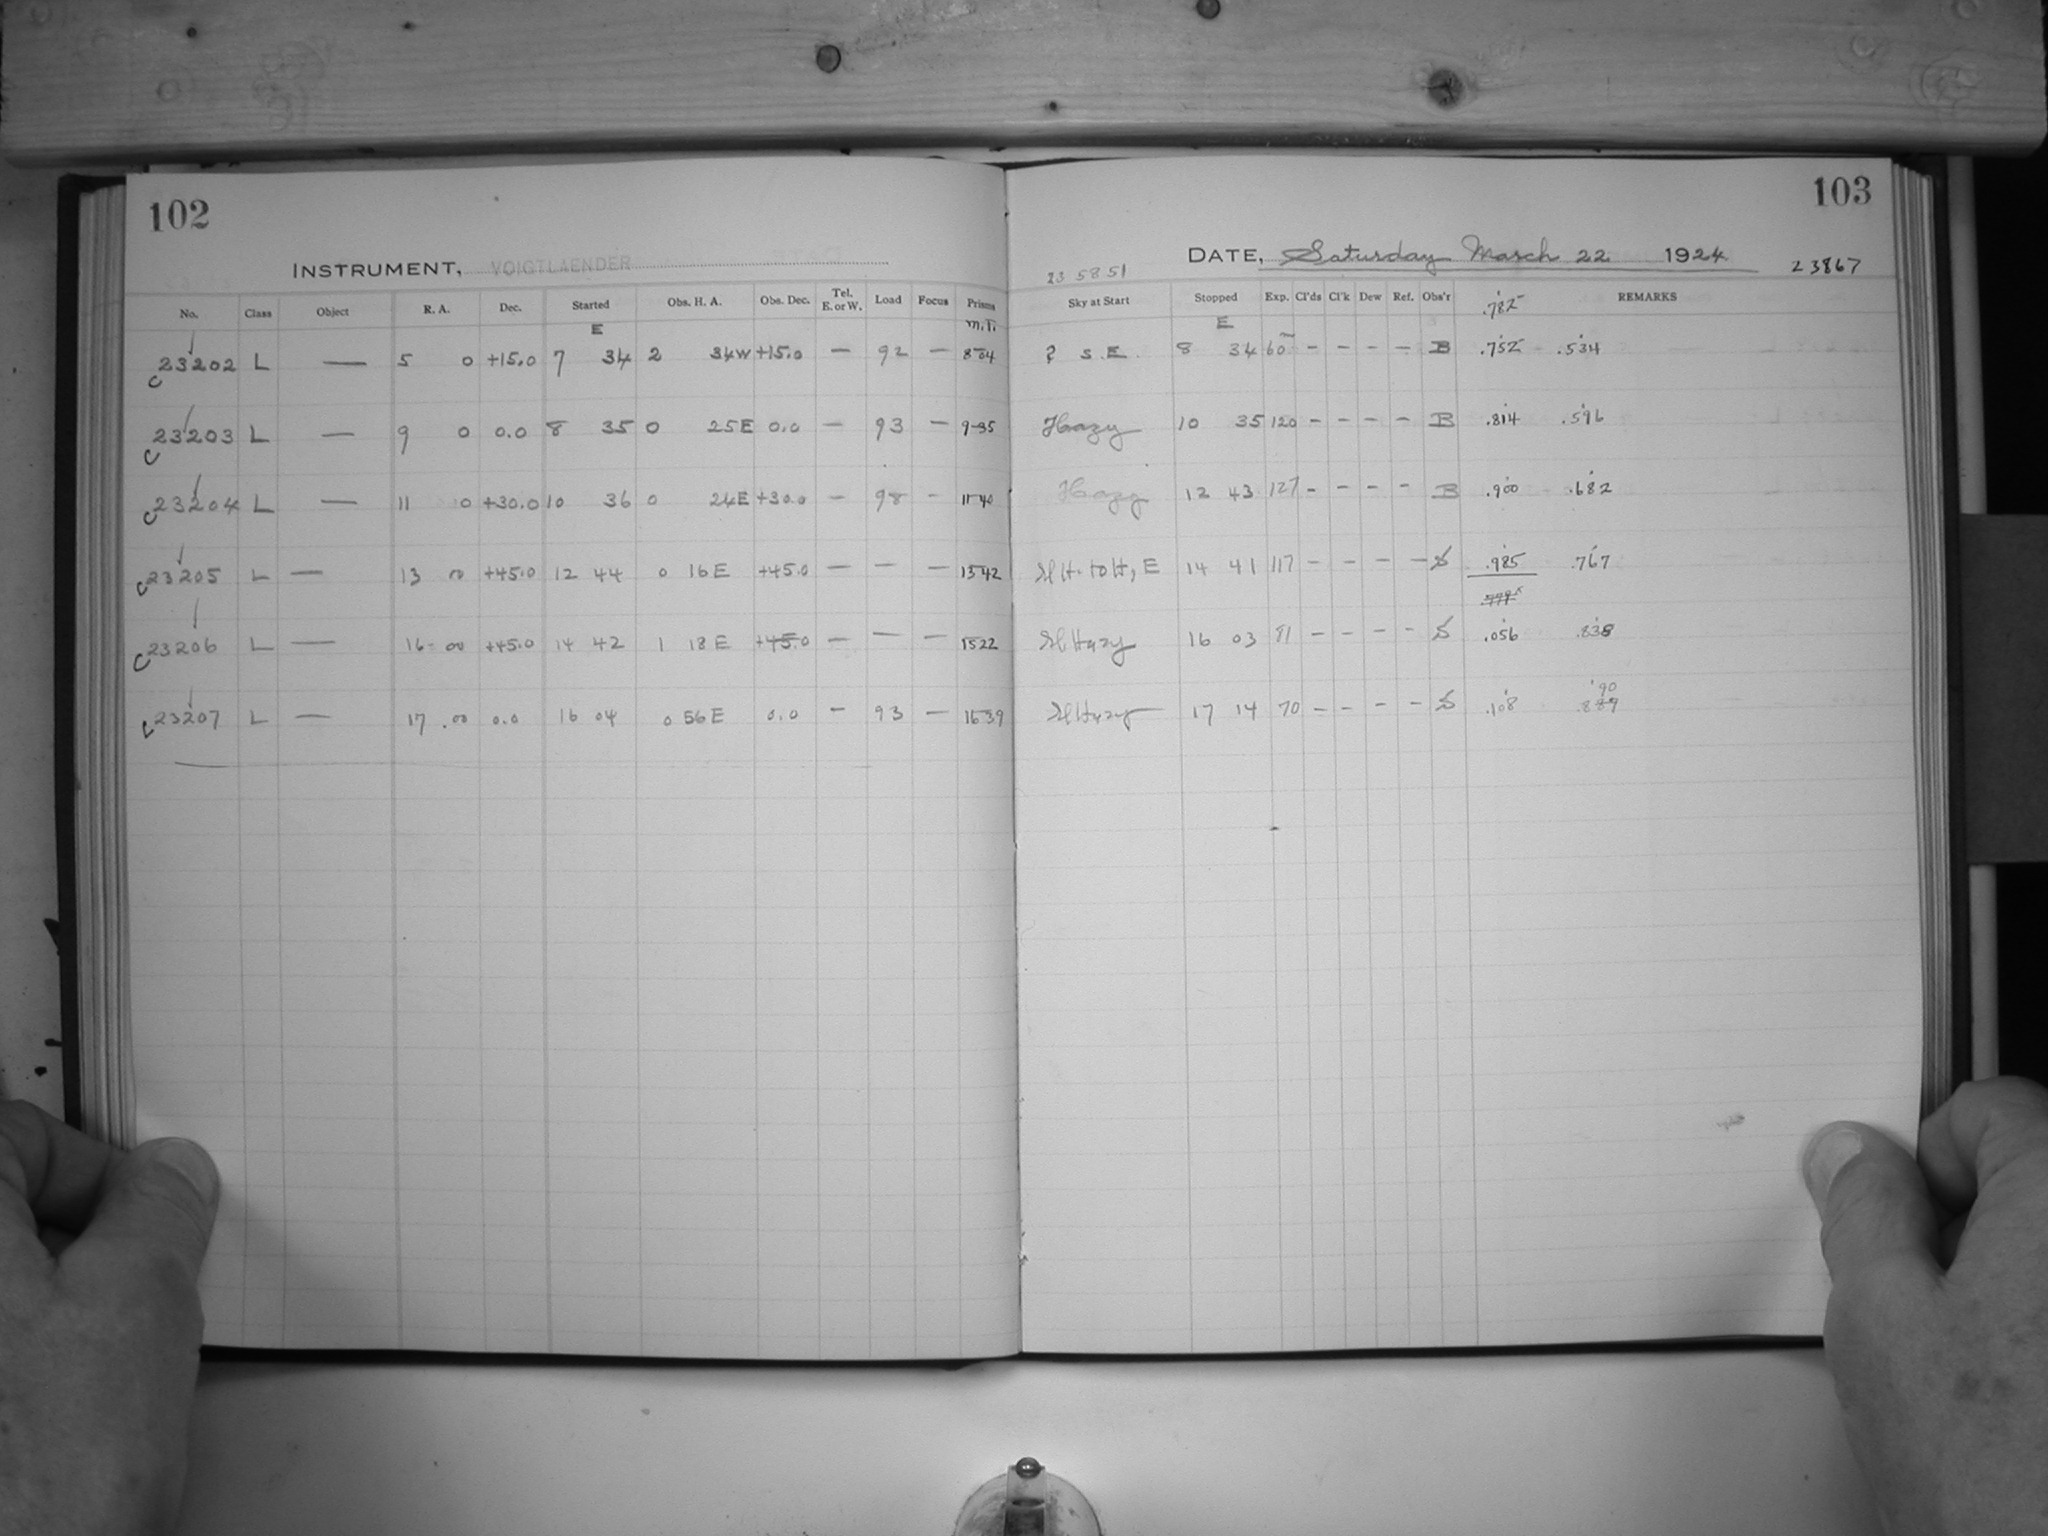 102
INSTRUMENT, VOIGTLAENDER
No. Class Object R. A. Dec. Started Obs. H. A. Obs. Dec. Tel. E. or W. Load Focus Prisms
E M.T.
C 23202 L — 5 0 +15.0 7 34 2 34W +15.0 — 92 — 8 04
C 23203 L — 9 0 0.0 8 35 0 25E 0.0 — 93 — 9-35
C 23204 L — 11 0 +30.0 10 36 0 24E +30.0 — 98 — 11 40
C 23205 L — 13 00 +45.0 12 44 0 16E +45.0 — — — 1342
C 23206 L — 16 00 +45.0 14 42 1 18E +45.0 — — — 1522
C 23207 L — 17 .00 0.0 16 04 0 56E 0.0 — 93 — 1639
103
DATE, Saturday March 22 1924
23 5851 23867
Sky at Start Stopped Exp. Cl'ds Cl'k Dew Ref. Obs'r REMARKS
E .782
? S.E. 8 34 60 — — — — B .752 .534
Hazy 10 35 120 — — — — B .814 .596
Hazy 12 43 127 — — — — B .900 .682
E 14 41 117 — — — — S .985 .767
Sl Hazy 16 03 81 — — — — S .056 .838
Sl Hazy 17 14 70 — — — — S .108 .889
90